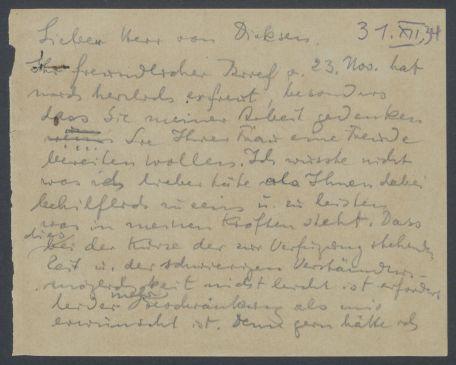 Lieber Herr von Dirksen, 31. XII. 41
Ihr freundlicher Brief v. 23. Nov. hat
mich herzlich erfreut, besonders
dass Sie meiner Arbeit gedenken
wenn Sie Ihrer Frau eine Freude
bereiten wollen. Ich wüsste nicht
was ich lieber täte als Ihnen dabei
behilflich zu sein u. zu leisten
was in meinen Kräften steht. Dass
dies bei der Kürze der zur Verfügung stehenden
Zeit u. der schwierigen Verständigungs-
möglichkeit nicht leicht ist erfordert
leider mehr Beschränkung als mir
erwünscht ist. Denn gern hätte ich